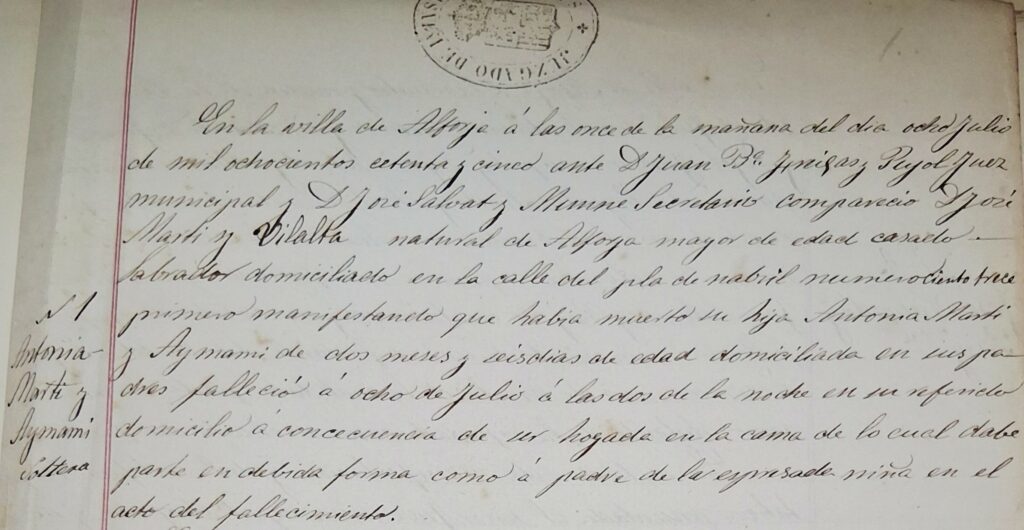 JUZGADO DE
1
En la villa de Alforja á las once de la mañana del dia ocho Julio
de mil ochocientos cetenta y cinco ante D Juan Bª. y Pujol Juez
municipal y D José Salvat y Munné Secretario comparecio D José
Marti y Vilalta natural de Alforja mayor de edad casado —
labrador domiciliado en la calle del pla de nabril numero ciento trece
primero manifestando que habia muerto su hija Antonia Marti
y Aymami de dos meses y seis dias de edad domiciliada en sus pa-
dres falleció á ocho de Julio á las dos de la noche en su referido
domicilio á concecuencia de ser hogada en la cama de lo cual dabe
parte en debida forma como á padre de la espresada niña en el
acto del fallecimiento.
N 1
Antonia
Marti y
Aymami
soltera